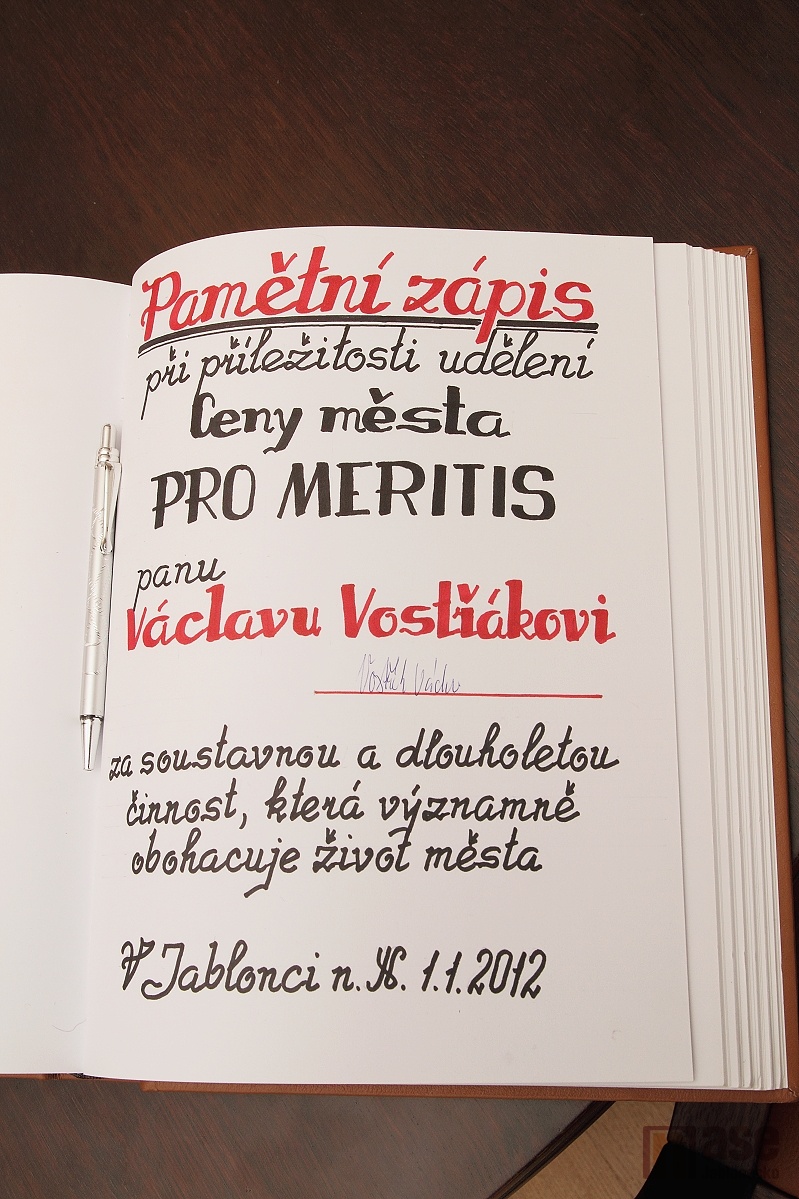 Pamětní zápis
při příležitosti udělení
Ceny města
PRO MERITIS
panu
Václavu Vostřákovi
za soustavnou a dlouholetou
činnost, která významně
obohacuje život města
V Jablonci n. N. 1.1.2012